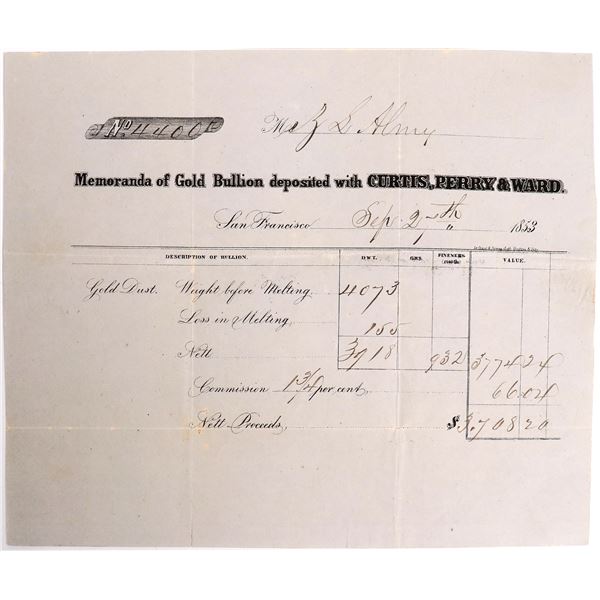 No 4400
M Z L Almy
Memoranda of Gold Bullion deposited with CURTIS, PERRY & WARD.
San Francisco Sep 27th 1853
DESCRIPTION OF BULLION. DWT. GRS. FINENESS VALUE.
Gold Dust. Weight before Melting, 4073
Loss in Melting, 155
Nett 3918 932 3,774 24
Commission 1 3/4 per cent. 66 04
Nett Proceeds, $3,708 20